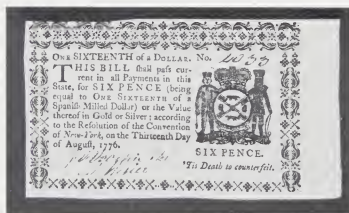 ONE SIXTEENTH of a DOLLAR. No.
THIS BILL shall pass cur-
rent in all Payments in this
State, for SIX PENCE (being
equal to ONE SIXTEENTH of a
Spanish Milled Dollar) or the Value
thereof in Gold or Silver: according
to the Resolution of the Convention
of New-York, on the Thirteenth Day
of August, 1776.
SIX PENCE.
'Tis Death to counterfeit.